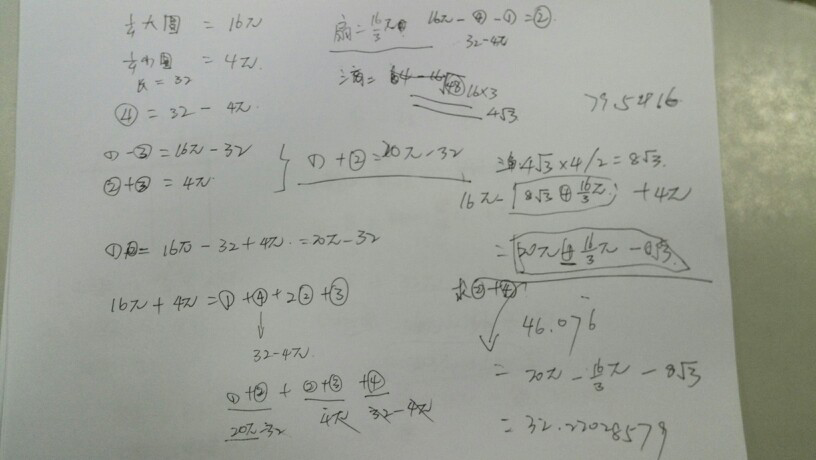 ¼大圆 = 16π
¼小圆 = 4π
长 = 32
④ = 32 - 4π
①-③ = 16π - 32
②+③ = 4π
} ①+② = 20π - 32
①② = 16π - 32 + 4π = 20π - 32
16π + 4π = ① + ④ + 2② + ③
32 - 4π
①+② + ②+③ + ④
20π-32 4π 32-4π
扇 = 16/3 π
16π - ④ - ① = ②
32 - 4π
64 - 16 √48 16×3
4√3
79.52816
4√3 × 4/2 = 8√3
16π - 8√3 + 16/3 π + 4π
= 20π - 16/3 π - 8√3
求②+④
46.076
= 20π - 16/3 π - 8√3
= 32.22028579